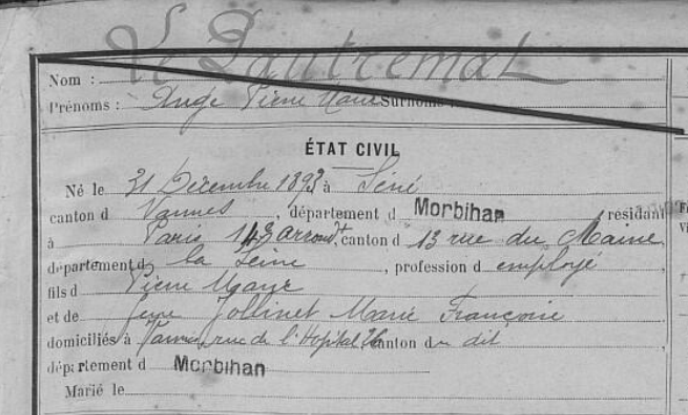 Nom : Le Pautremat
Prénoms : Ange Pierre Marie Surnoms :
ÉTAT CIVIL
Né le 31 Décembre 1893 à Séné
canton d Vannes , département d Morbihan , résidant
à Paris 14e Arrondt, canton d 13 rue du Maine
département d la Seine , profession d employé
fils d Pierre Marie
et de feue Jollinet Marie Françoise
domiciliés à Vannes, rue de l'Hopital canton du dit
département d Morbihan
Marié le